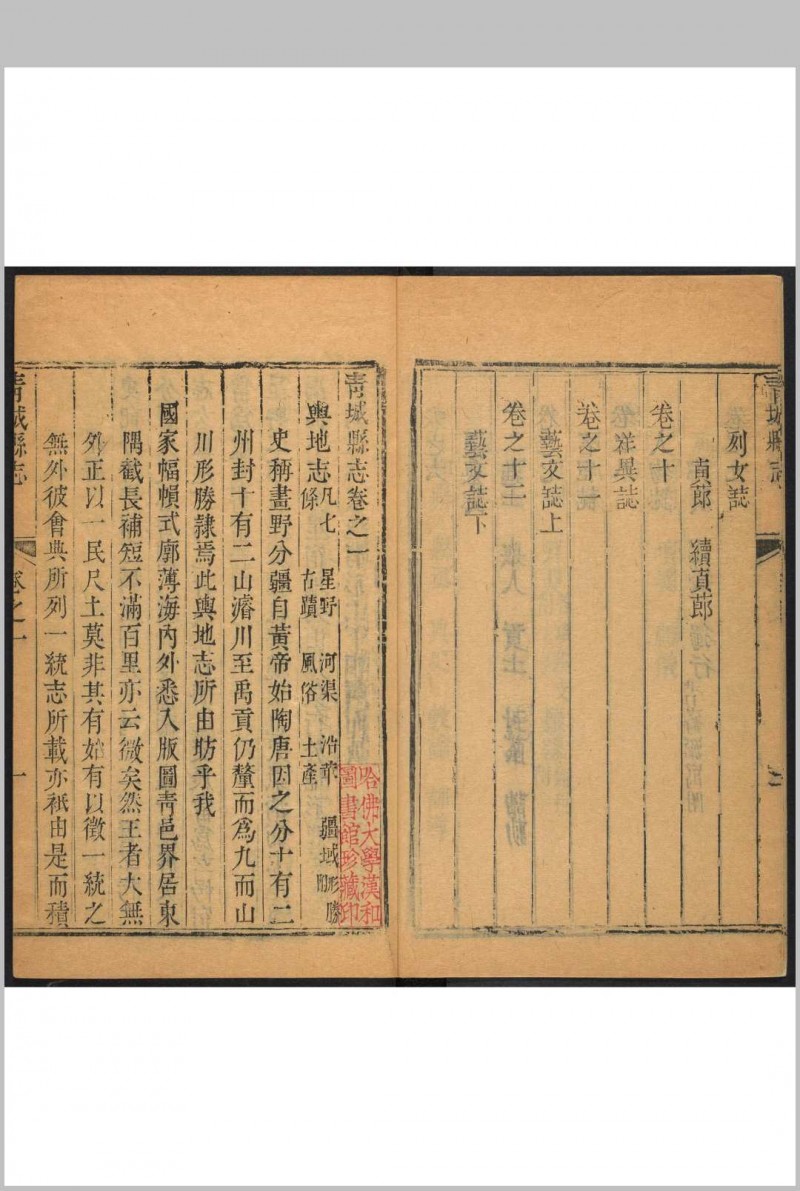 青城縣志
列女誌
貞節　續貞節
卷之十
祥異誌
卷之十一
藝文誌上
卷之十二
藝文誌下
青城縣志卷之一
輿地志 凡七條 星野 河渠 沿革 疆域 形勝附 古蹟 風俗 土產
史稱畫野分疆自黃帝始陶唐因之分十有二
州封十有二山濬川至禹貢仍釐而為九而山
川形勝隸焉此輿地志所由昉乎我
國家幅幀式廓薄海內外悉入版圖青邑界居東
隅截長補短不滿百里亦云微矣然王者大無
外正以一民尺土莫非其有始有以徵一統之
無外彼會典所列一統志所載亦祇由是而積
青城縣志
卷之一
一
哈佛大學漢和
圖書館珍藏印